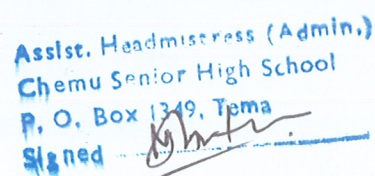 Assist. Headmistress (Admin.)
Chemu Senior High School
P. O. Box 1349, Tema
Signed